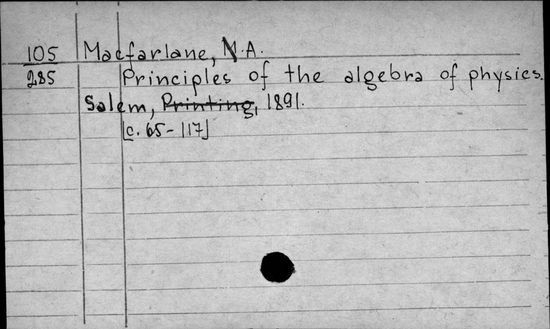 105 Macfarlane, A.
285 Principles of the algebra of physics.
Salem, Printing, 1891.
[c. 65-117]